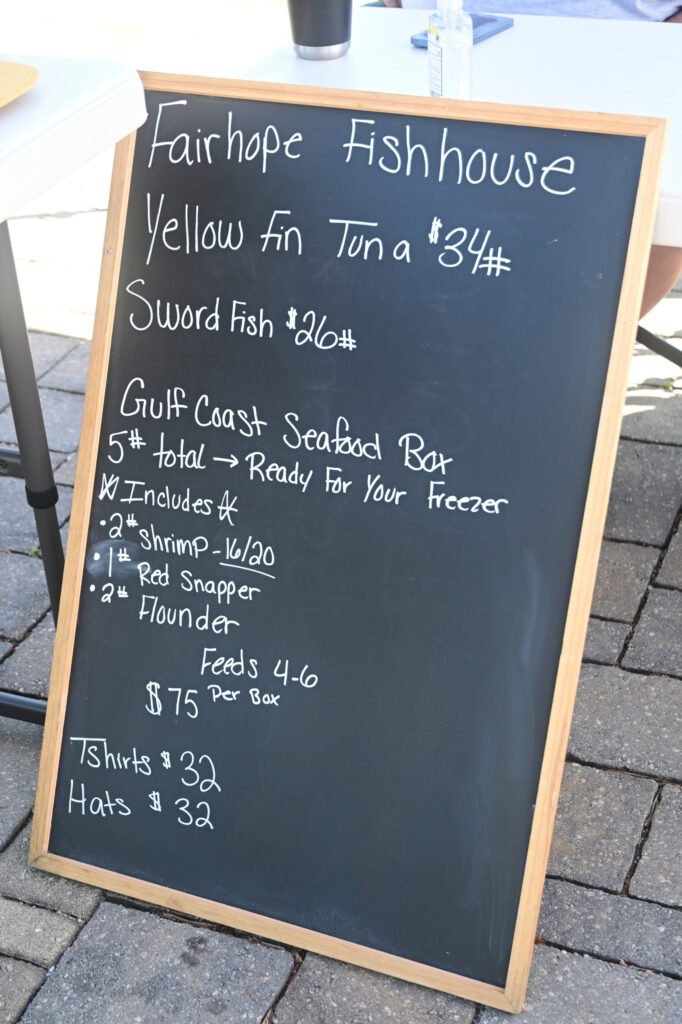 Fairhope Fishhouse
Yellow Fin Tuna $34#
Sword Fish $26#
Gulf Coast Seafood Box
5# total → Ready For Your Freezer
* Includes *
• 2# Shrimp - 16/20
• 1# Red Snapper
• 2# Flounder
Feeds 4-6
$75 Per Box
Tshirts $32
Hats $32